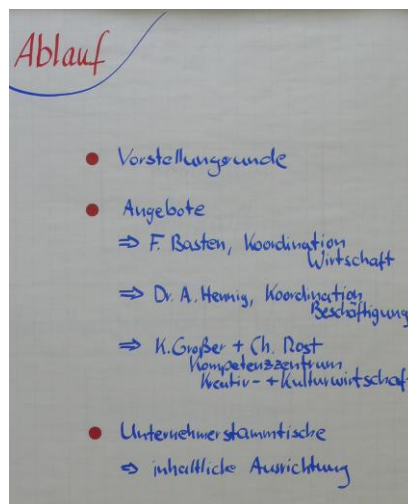 Ablauf
• Vorstellungsrunde
• Angebote
⇒ F. Basten, Koordination
Wirtschaft
⇒ Dr. A. Hennig, Koordination
Beschäftigung
⇒ K. Großer + Ch. Rost
Kompetenzzentrum
Kreativ- + Kulturwirtschaf
• Unternehmerstammtische
⇒ inhaltliche Ausrichtung